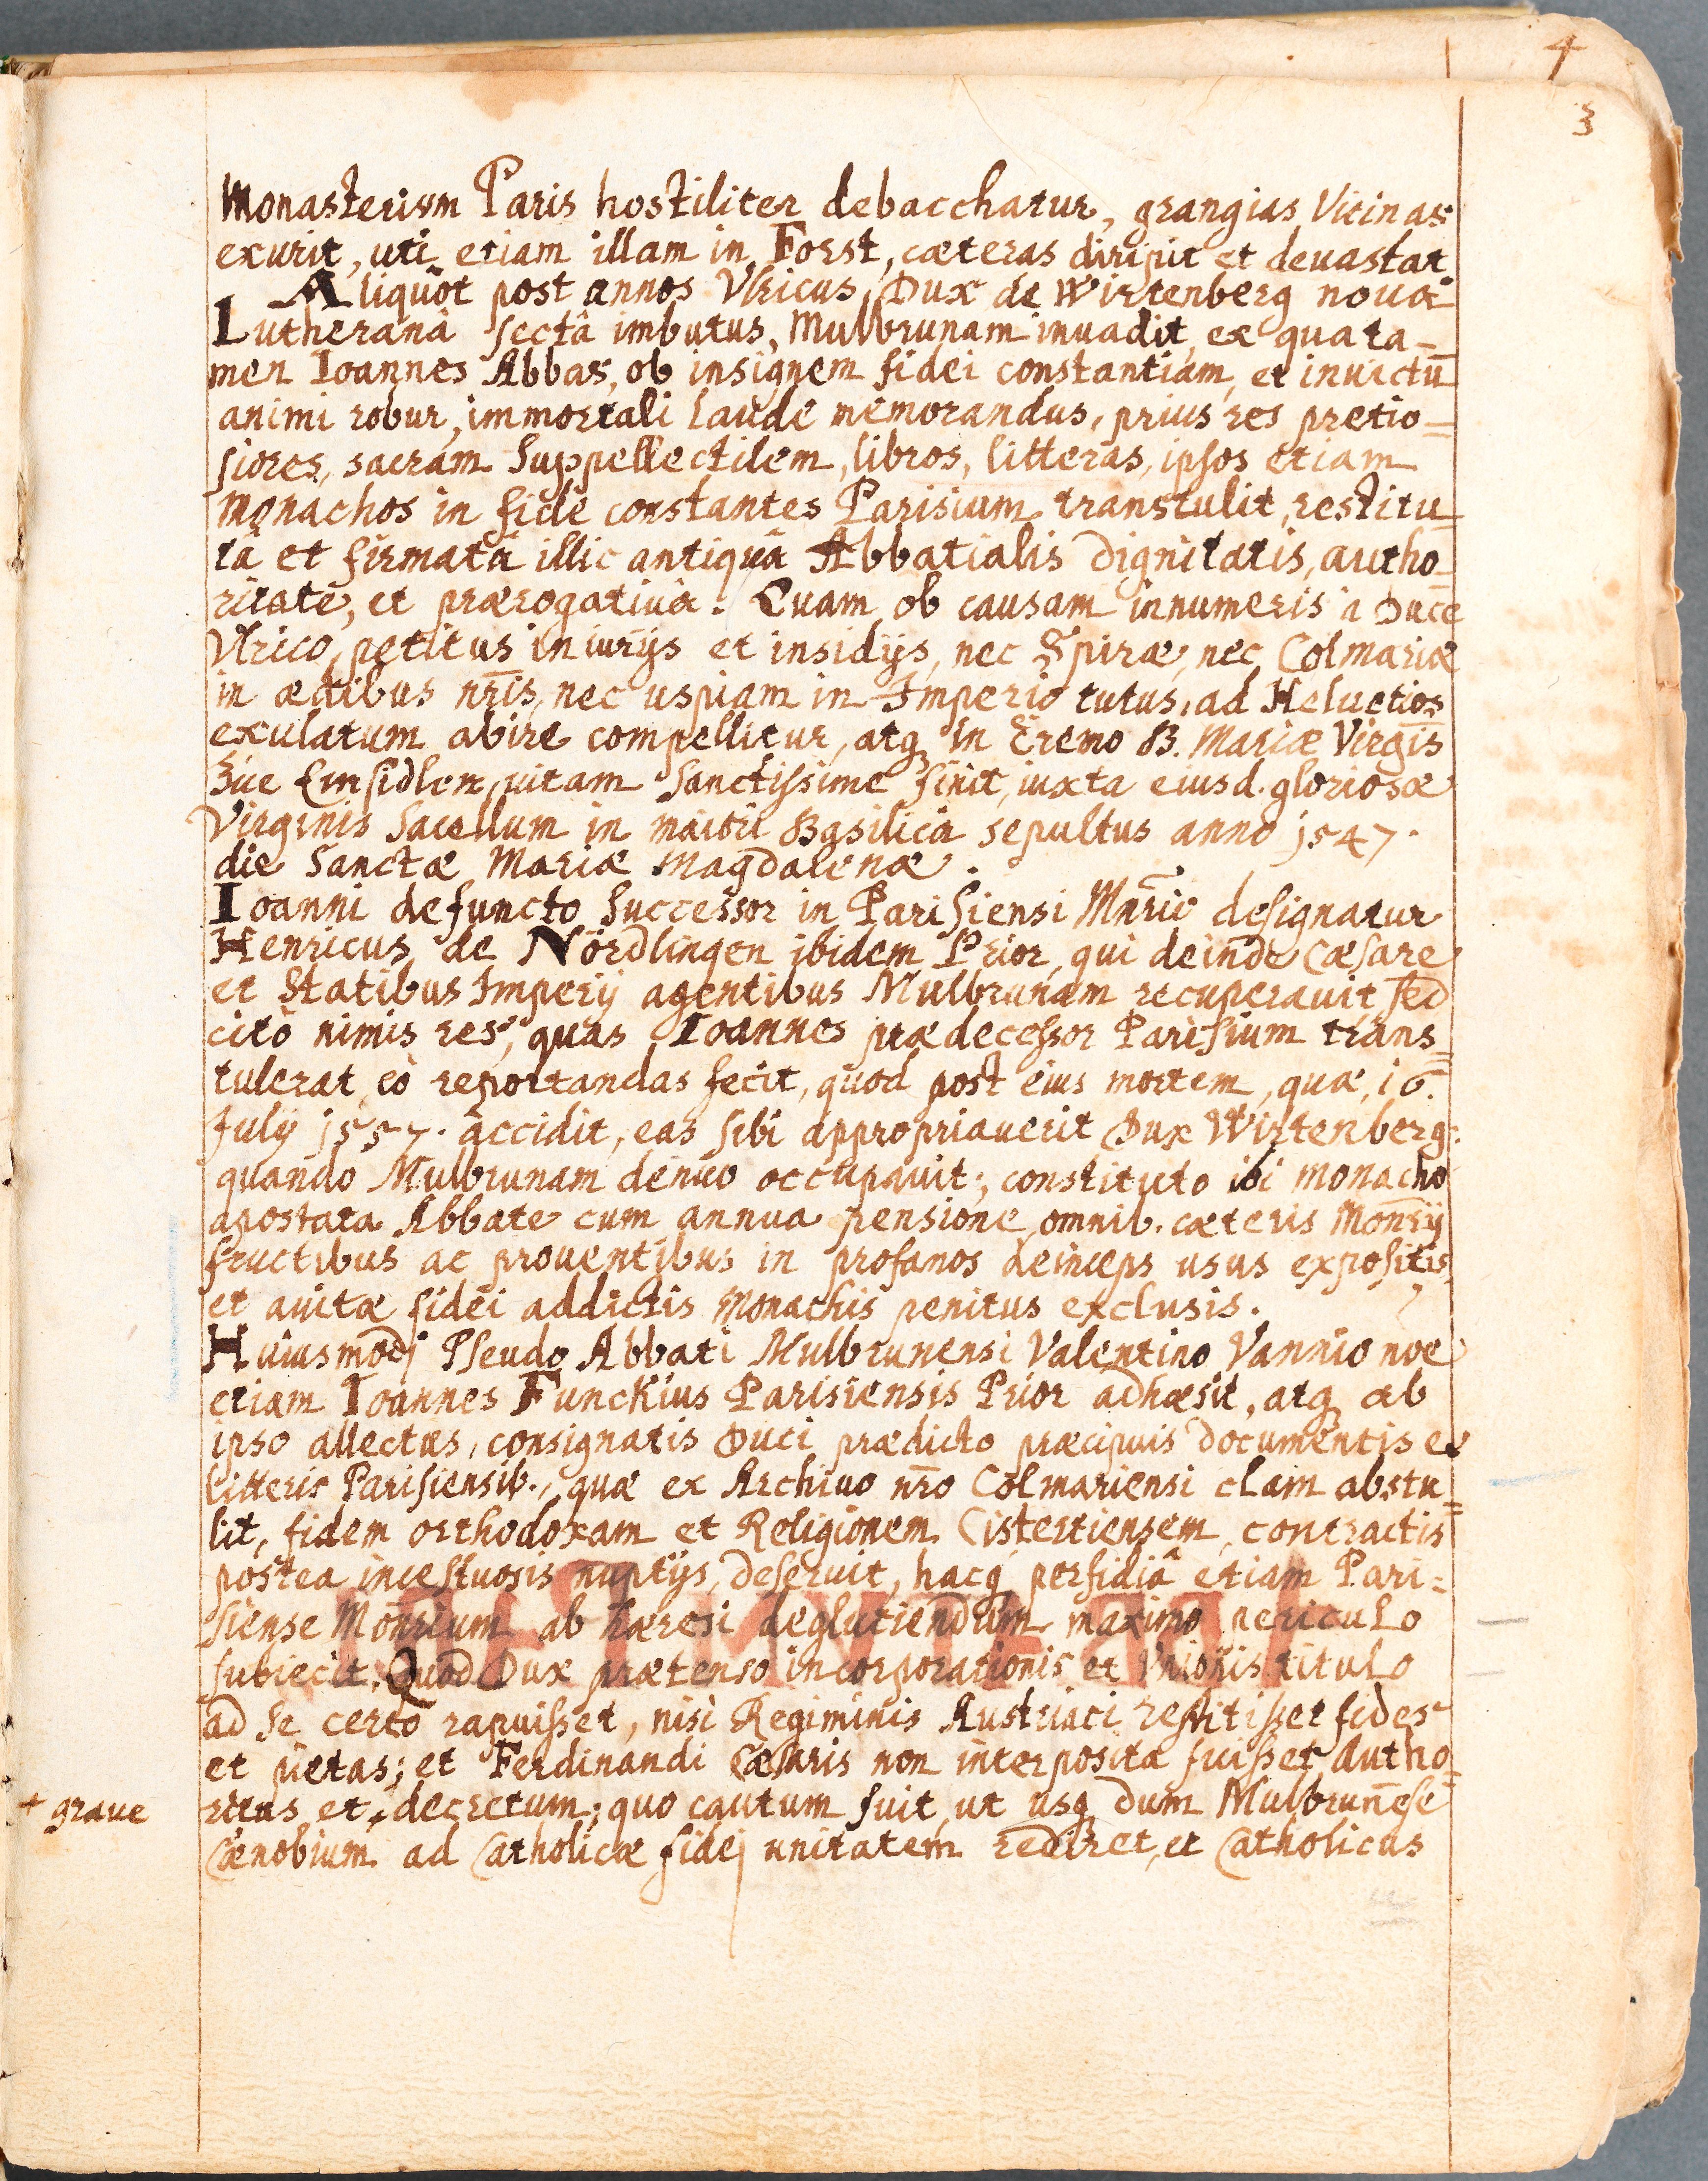 4
3
Monasterium Paris hostiliter debacchatur, grangias Vicinas
exurit, uti etiam illam in Forst, cæteras diripit et deuastat.
Aliquôt post annos Vlricus Dux de Wirtenberg nouâ
Lutheranâ sectâ imbutus, Mulbrunam inuadit, ex qua ta-
men Ioannes Abbas, ob insignem fidei constantiam, et inuictū
animi robur, immortali laude memorandus, prius res pretio=
siores, sacram Suppellectilem, libros, litteras, ipsos etiam
monachos in fide constantes Parisium transtulit, restitu_
tâ et firmatâ illic antiquâ Abbatialis Dignitatis, autho_
ritate, et prærogatiuâ. Quam ob causam innumeris à Duce
Vlrico, petitus iniurijs et insidijs, nec Spiræ, nec Colmariæ
in ædibus nr̄is, nec uspiam in Imperio tutus, ad Heluetios
exulatum abire compellitur, atq in Eremo B. Mariæ Virgīs
Siue Einsidlen, uitam Sanctissime finit, iuxta eiusd. gloriosæ
Virginis Sacellum in maiori Basilica sepultus anno 1547.
die Sanctæ Mariæ Magdalenæ.
Ioanni defuncto Successor in Parisiensi Mn̄rio designatur
Henricus de Nördlingen ibidem Prior, qui deinde Cæsare
et Statibus Imperij agentibus Mulbrunam recuperauit, sed
citò nimis res, quas Ioannes prædecessor Parisium trans=
tulerat, eò reportandas fecit, quod post eius mortem, quæ, 16.
July 1557. accidit, eas sibi appropriauerit Dux Wirtenberg:
quando Mulbrunam denuo occupauit; constituto ibi monacho
apostata Abbate cum annua pensione, omnib. cæteris Monrij
fructibus ac prouentibus in profanos deinceps usus expositis,
et auitæ fidei addictis Monachis penitus exclusis.
Huiusmodj Pseudo Abbati Mulbrunensi Valentino Vannio noē
etiam Ioannes Funckius Parisiensis Prior adhæsit, atq ab
ipso allectus, consignatis Duci prædicto præcipuis documentis et
litteris Parisiensib., quæ ex Archiuo nr̄o Colmariensi clam abstu=
lit, fidem orthodoxam et Religionem Cistertiensem, contractis
postea incestuosis nuptijs, deseruit, hacq perfidiâ etiam Pari=
siense Mon̄rium ab hæresi deglutiendum maximo periculo
subiecit. Quod Dux prætenso incorporationis et Vnionis titulo
ad se certo rapuisset, nisi Regiminis Austriaci restitisset fides
et pietas; et Ferdinandi Cæsaris non interposita fuisset Autho_
ritas et + decretum; quo cautum fuit, ut usq dum Mulbrun̄ēse
+ graue
Cænobium ad Catholicæ fidej unitatem rediret, et Catholicus